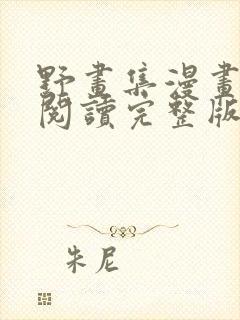 野畫集漫畫
閱讀完整版
朱尼